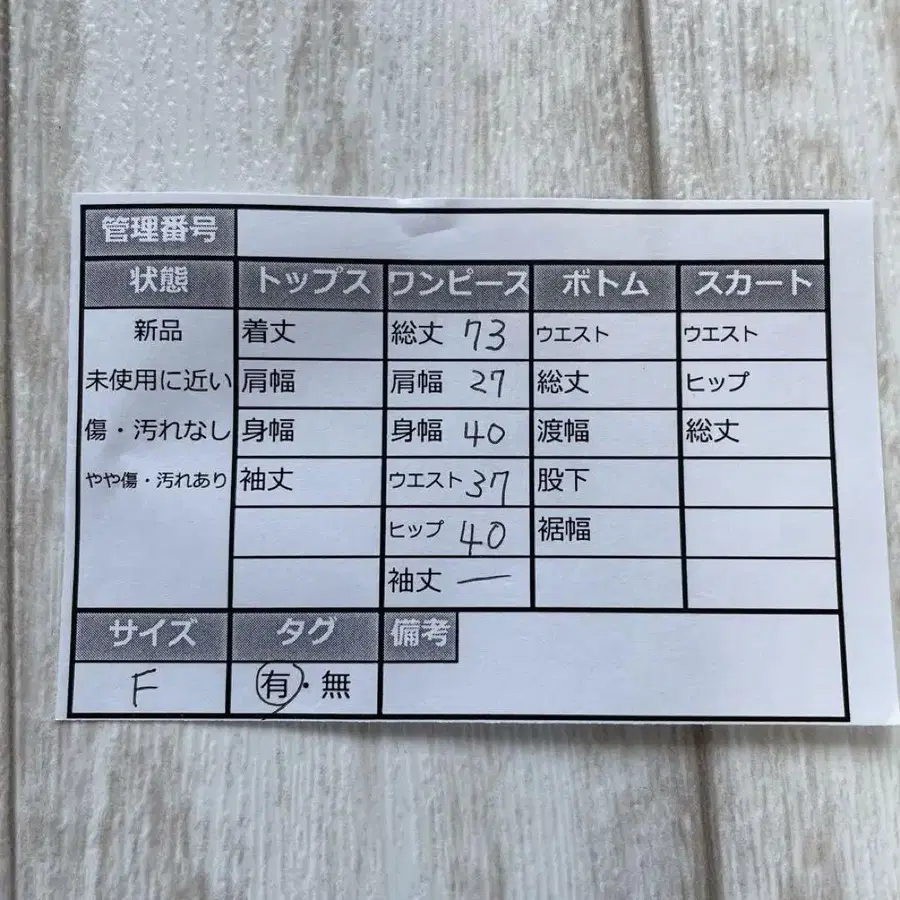 管理番号
状態 トップス ワンピース ボトム スカート
新品 着丈 総丈 73 ウエスト ウエスト
未使用に近い 肩幅 肩幅 27 総丈 ヒップ
傷・汚れなし 身幅 身幅 40 渡幅 総丈
やや傷・汚れあり 袖丈 ウエスト 37 股下
ヒップ 40 裾幅
袖丈 —
サイズ タグ 備考
F 有・無